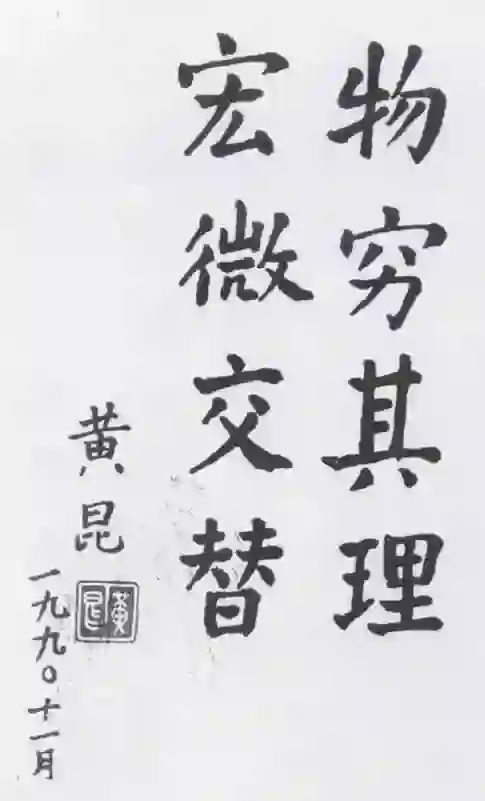 物穷其理
宏微交替
黄昆
黄昆
一九九〇十一月